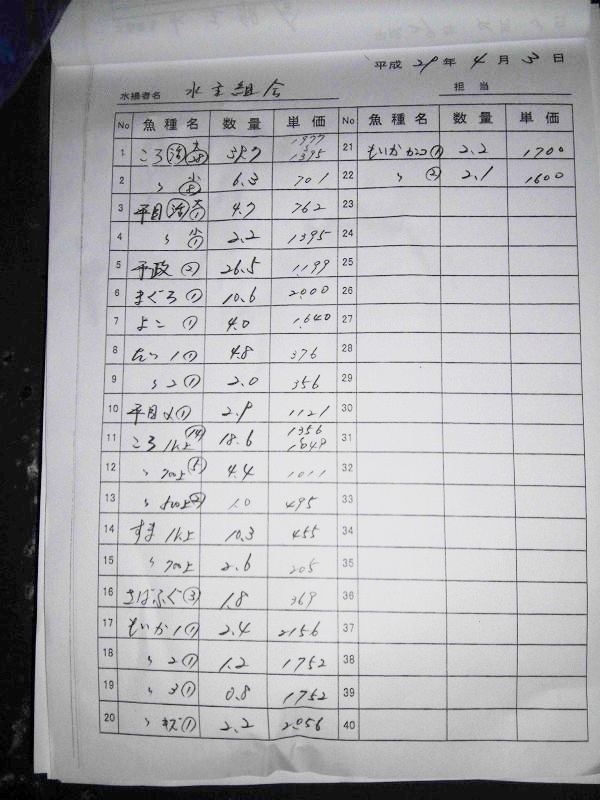 平成 29 年 4 月 3 日
水揚者名 水主組合
担当
No 魚種名 数量 単価 No 魚種名 数量 単価
1 ころ 活 大 28 39.7 1977 1395 21 もいかカゴ① 2.2 1700
2 〃 小 8 6.3 701 22 〃 ② 2.1 1600
3 平目 活 大 ① 4.7 762 23
4 〃 小 ① 2.2 1395 24
5 平政 ② 26.5 1199 25
6 まぐろ ① 10.6 2000 26
7 よこ ① 4.0 1640 27
8 1 ① 4.8 376 28
9 〃 2 ① 2.0 356 29
10 平目〆① 2.9 1121 30
11 ころ 1k上 ⑭ 18.6 1356 1649 31
12 〃 700上 ⑤ 4.4 1011 32
13 〃 500上 ② 1.0 495 33
14 すま 1k上 10.3 455 34
15 〃 700上 2.6 205 35
16 さばふぐ ③ 1.8 369 36
17 もいか 1 ① 2.4 2156 37
18 〃 2 ① 1.2 1752 38
19 〃 3 ① 0.8 1752 39
20 〃 キズ ① 2.2 2056 40